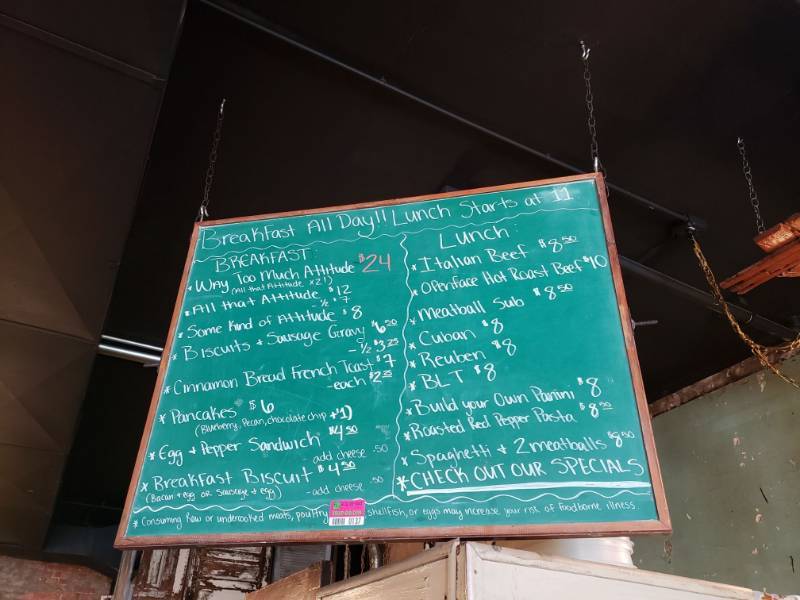 Breakfast All Day!! Lunch Starts at 11
BREAKFAST:
* WAY Too Much Attitude $24
(All that Attitude x2!)
* All that Attitude $12
½ $7
* Some Kind of Attitude $8
* Biscuits + Sausage Gravy $6.50
- ½ $3.25
* Cinnamon Bread French Toast $7
- each $2.25
* Pancakes $6
(Blueberry, Pecan, chocolate chip +1)
* Egg + Pepper Sandwich $4.50
add cheese .50
* Breakfast Biscuit $4.50
(Bacon + egg or Sausage + egg) - add cheese .50
Lunch:
* Italian Beef $8.50
* Openface Hot Roast Beef $10
* Meatball Sub $8.50
* Cuban $8
* Reuben $8
* BLT $8
* Build your Own Panini $8
* Roasted Red Pepper Pasta $8.50
* Spaghetti + 2 meatballs $8.50
* CHECK OUT OUR SPECIALS
* Consuming Raw or undercooked meats, poultry shellfish, or eggs may increase your risk of foodborne illness.
0137